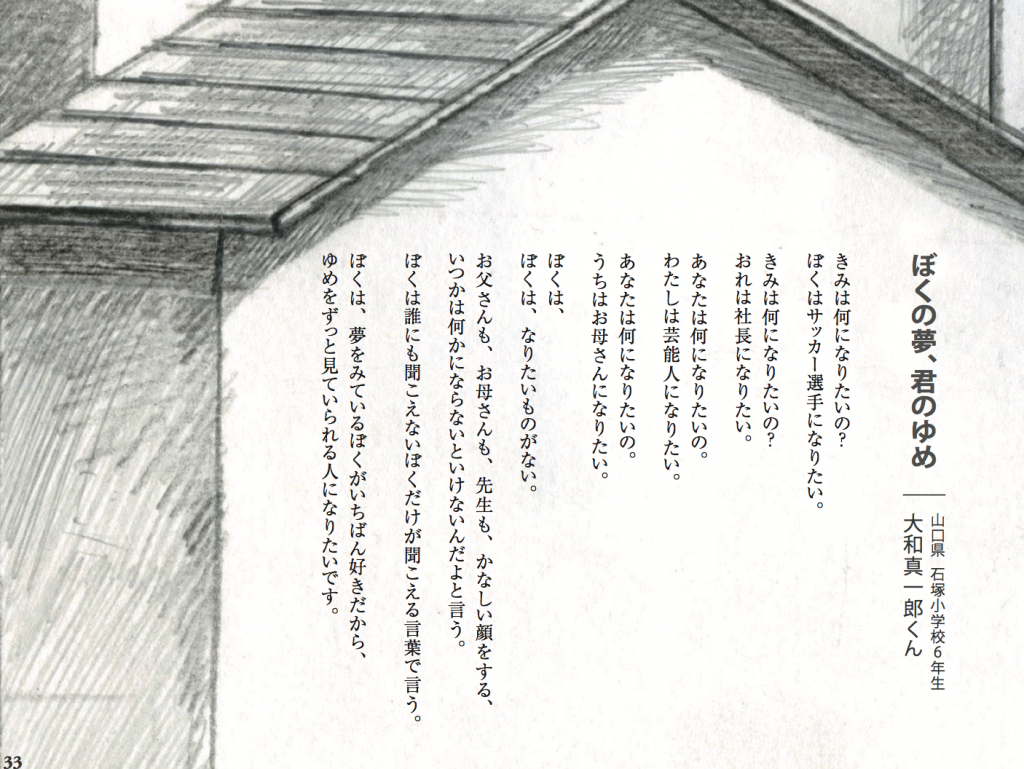 ぼくの夢、君のゆめ
山口県 石塚小学校6年生
大和真一郎くん
きみは何になりたいの？
ぼくはサッカー選手になりたい。
きみは何になりたいの？
おれは社長になりたい。
あなたは何になりたいの。
わたしは芸能人になりたい。
あなたは何になりたいの。
うちはお母さんになりたい。
ぼくは、
ぼくは、なりたいものがない。
お父さんも、お母さんも、先生も、かなしい顔をする、
いつかは何かにならないといけないんだよと言う。
ぼくは誰にも聞こえないぼくだけが聞こえる言葉で言う。
ぼくは、夢をみているぼくがいちばん好きだから、
ゆめをずっと見ていられる人になりたいです。
33